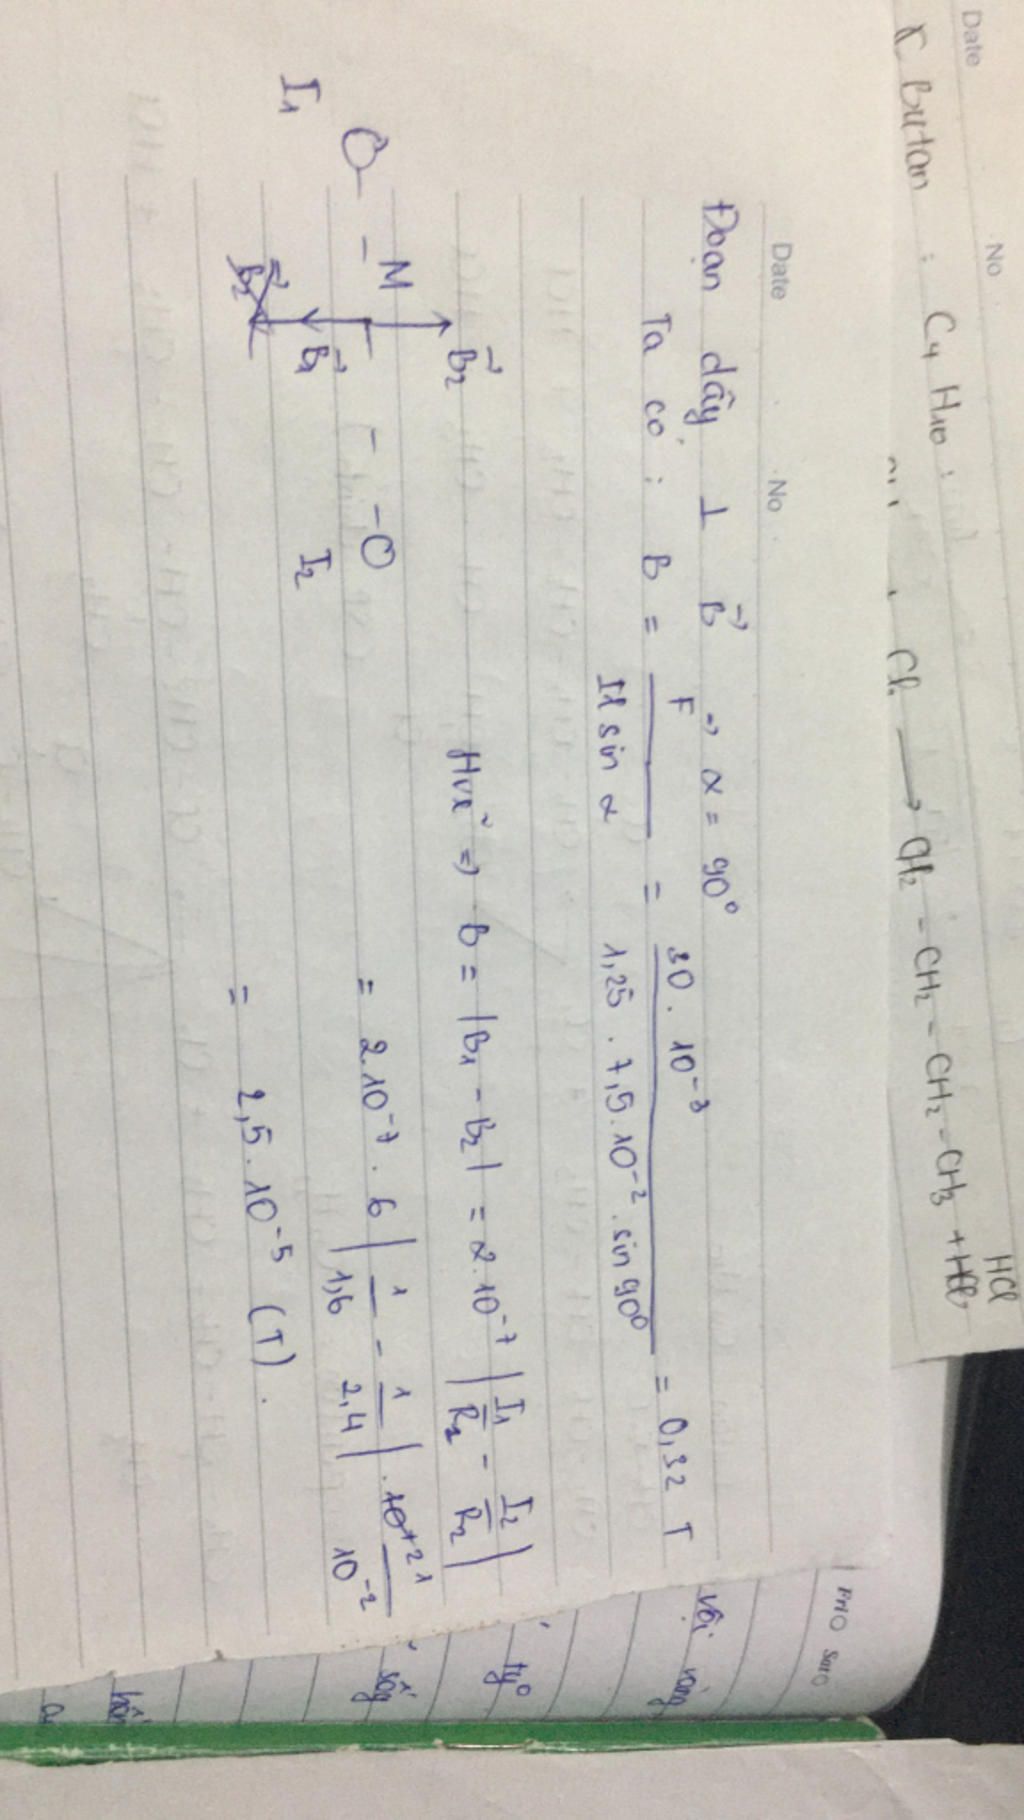 Date No
K Butan : C4 H10 :
HCl
Cl2 ⟶ CH2 - CH2 - CH2 - CH3 + HCl
Date No
Đoạn dây ⊥ B⃗ → α = 90°
Ta có : B = F / Il sin α = 30 . 10⁻³ / 1,25 . 7,5 . 10⁻² . sin 90° = 0,32 T
B⃗2
M
I1
B⃗1
I2
Hvẽ => B = |B1 - B2| = 2.10⁻⁷ | I1 / R1 - I2 / R2 |
= 2.10⁻⁷ . 6 | 1 / 1,6 - 1 / 2,4 | . 1 / 10⁻²
= 2,5 . 10⁻⁵ (T) .
với vàng
tỷ
sấy